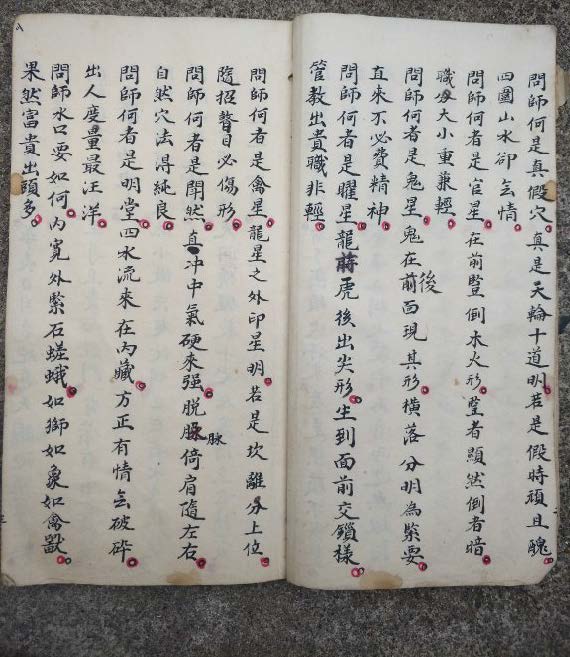 問師何是真假穴真是天輪十道明若是假時頑且醜
四圍山水卻無情
問師何者是官星在前豎倒木火形豎者顯然倒者暗
職分大小重兼輕
問師何者是鬼星鬼在前後面現其形橫落分明為緊要
直來不必費精神
問師何者是曜星龍蔣虎後出尖形生到面前交鎖樣
管教出貴職非輕
問師何者是禽星龍星之外印星明若是坎離分上位
隨招瞽目必傷形
問師何者是閗然直冲中氣硬來强脱脉倚肩隨左右
自然穴法得純良
問師何者是明堂四水流來在內藏方正有情無破碎
出人度量最汪洋
問師水口要如何內寬外緊石蹉蛾如獅如象如禽獸
果然富貴出頭多